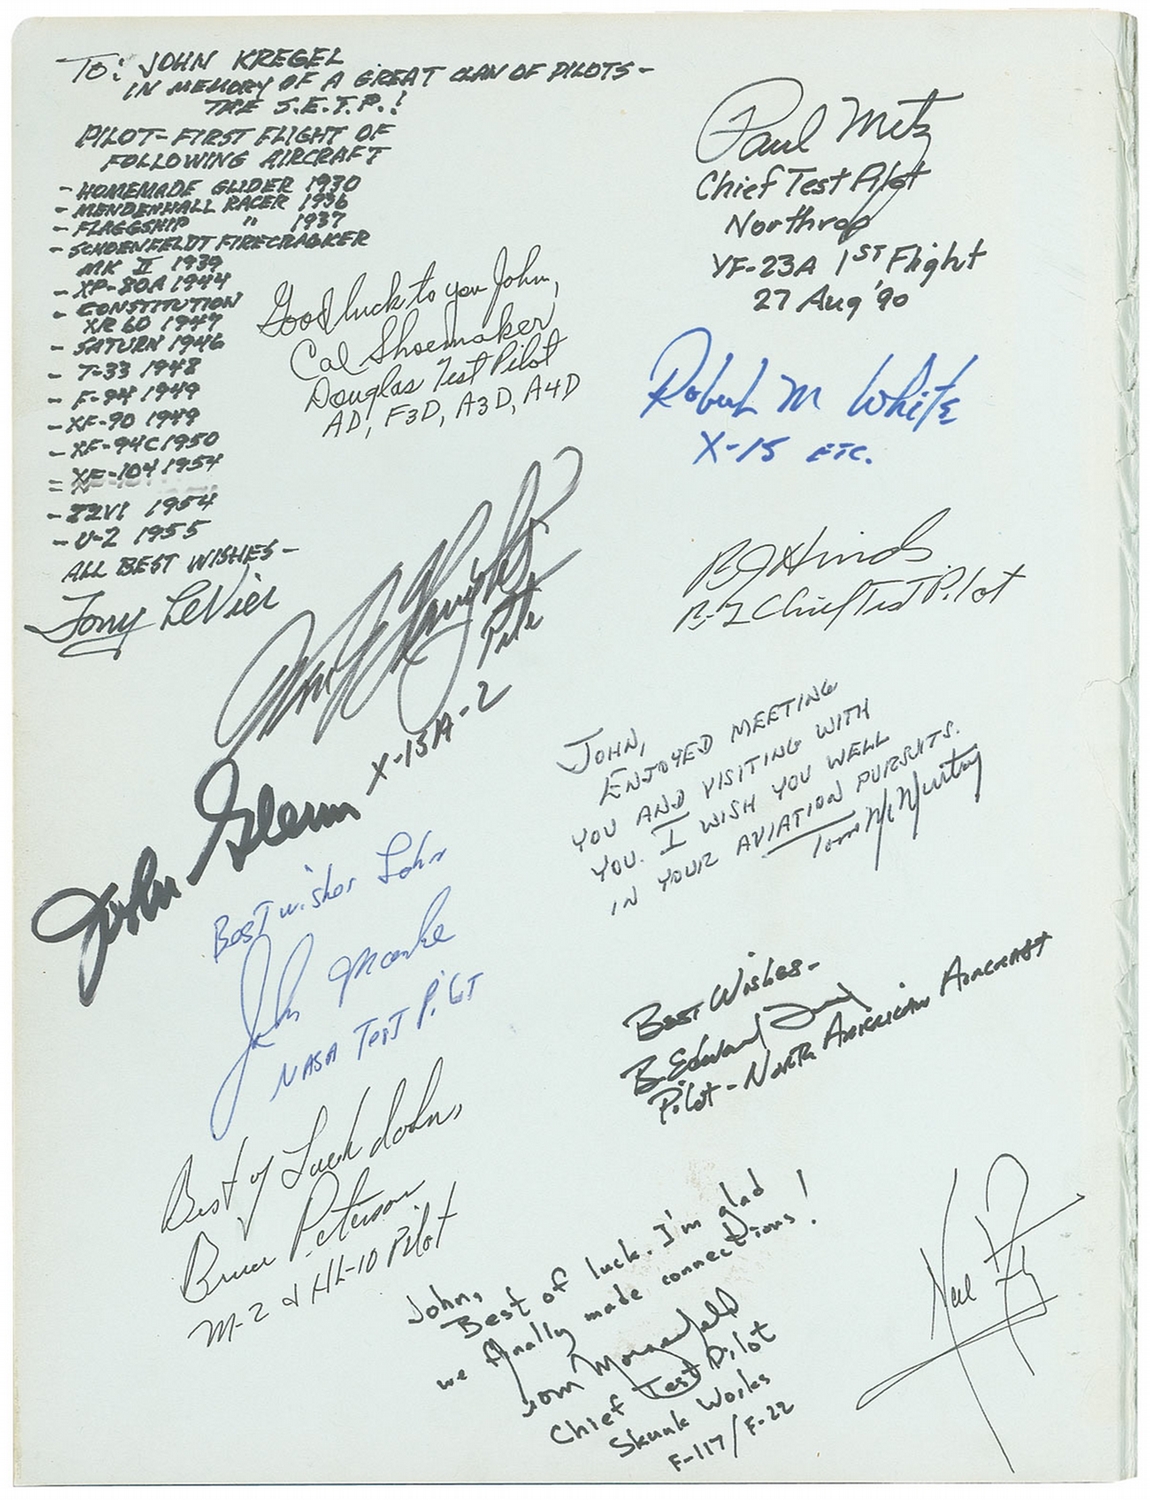 TO: JOHN KREGEL
IN MEMORY OF A GREAT CLAN OF PILOTS-
THE S.E.T.P.!
PILOT-FIRST FLIGHT OF
FOLLOWING AIRCRAFT
- HOMEMADE GLIDER 1930
- MENDENHALL RACER 1936
- FLAGGSHIP " 1937
- SCHOENFELDT FIRECRACKER
MK II 1939
- XP-80A 1944
- CONSTITUTION
XR60 1947
- SATURN 1946
- T-33 1948
- F-94 1949
- XF-90 1949
- XF-94C 1950
- XF-104 1954
- T2V1 1954
- U-2 1955
ALL BEST WISHES-
Tony LeVier
Good luck to you John,
Cal Shoemaker
Douglas Test Pilot
AD, F3D, A3D, A4D
Paul Metz
Chief Test Pilot
Northrop
YF-23A 1ST Flight
27 Aug '90
Robert M White
X-15 ETC.
BJ Hinds
B-2 Chief Test Pilot
Wm J Knight
Pete
X-15A-2
John Glenn
JOHN,
ENJOYED MEETING
YOU AND VISITING WITH
YOU. I WISH YOU WELL
IN YOUR AVIATION PURSUITS.
Tom McMurtry
Best wishes John
John Manke
NASA Test Pilot
Best Wishes-
B. Edward
Pilot-North American Aircraft
Best of Luck John,
Bruce Peterson
M-2 & HL-10 Pilot
John,
Best of luck. I'm glad
we finally made connections!
Tom Morgenfeld
Chief Test Pilot
Skunk Works
F-117/F-22
Neil